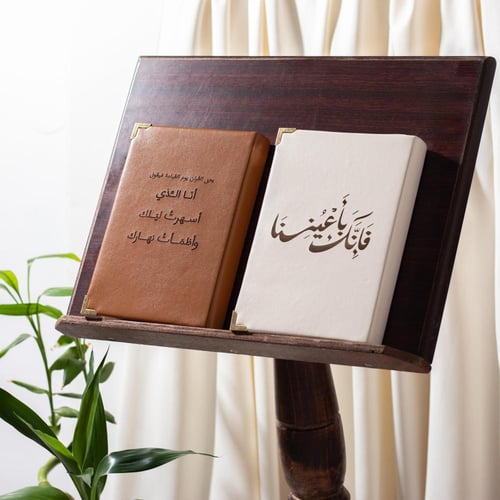 يجئ القرآن يوم القيامة فيقول
أنا الذي
أسهرتُ ليلك
وأظمأتُ نهارك
فَإِنَّكَ بِأَعْيُنِنَا